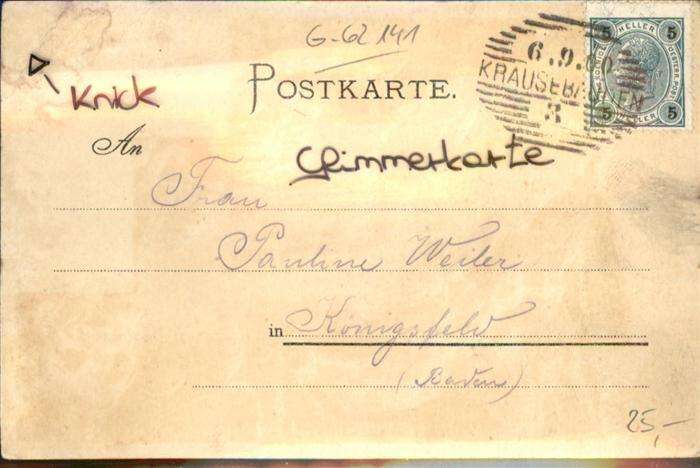 G-62 141
5 HELLER 5
6.9.00
KRAUSEBAUDEN
3
5 HELLER 5
POSTKARTE.
Knick
An
Glimmerkarte
Frau
Pauline Weiler
in Königsfeld
(Baden)
25,-